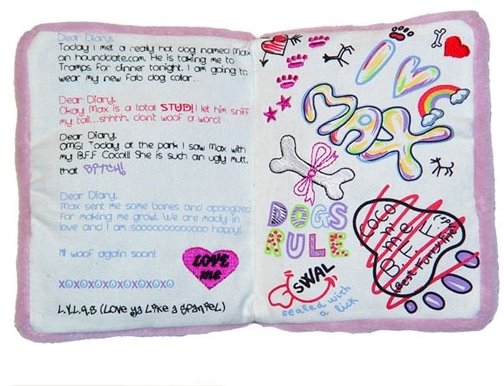 Dear Diary,
Today I met a really hot dog named Max
on hounddate.com. He is taking me to
Tramps for dinner tonight. I am going to
wear my new Fab dog color...
Dear Diary,
Okay Max is a total STUD! I let him sniff
my tail...shhhh, dont woof a word!
Dear Diary,
OMG! Today at the park I saw Max with
my B.F.F Coco!! She is such an ugly mutt,
that B*TCH!
Dear Diary,
Max sent me some bones and apologized
for making me growl. We are madly in
love and I am soooooooooooooo happy!
I'll woof again soon!
XOXOXOXOXOXOXOXO
L.Y.L.A.S (Love ya Like a Spaniel)
LOVE
me
I
MAX
DOGS
RULE
SWAL
sealed with
a lick
COCO
n me
B.F.F